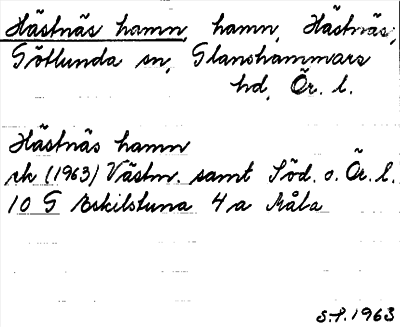 Hästnäs hamn, hamn, Hästnäs,
Götlunda sn, Glanshammars
hd, Ör. l.
Hästnäs hamn
rk (1963) Västm. samt Söd. o. Ör. l.
10 G Eskilstuna 4a Måla
S.S. 1963